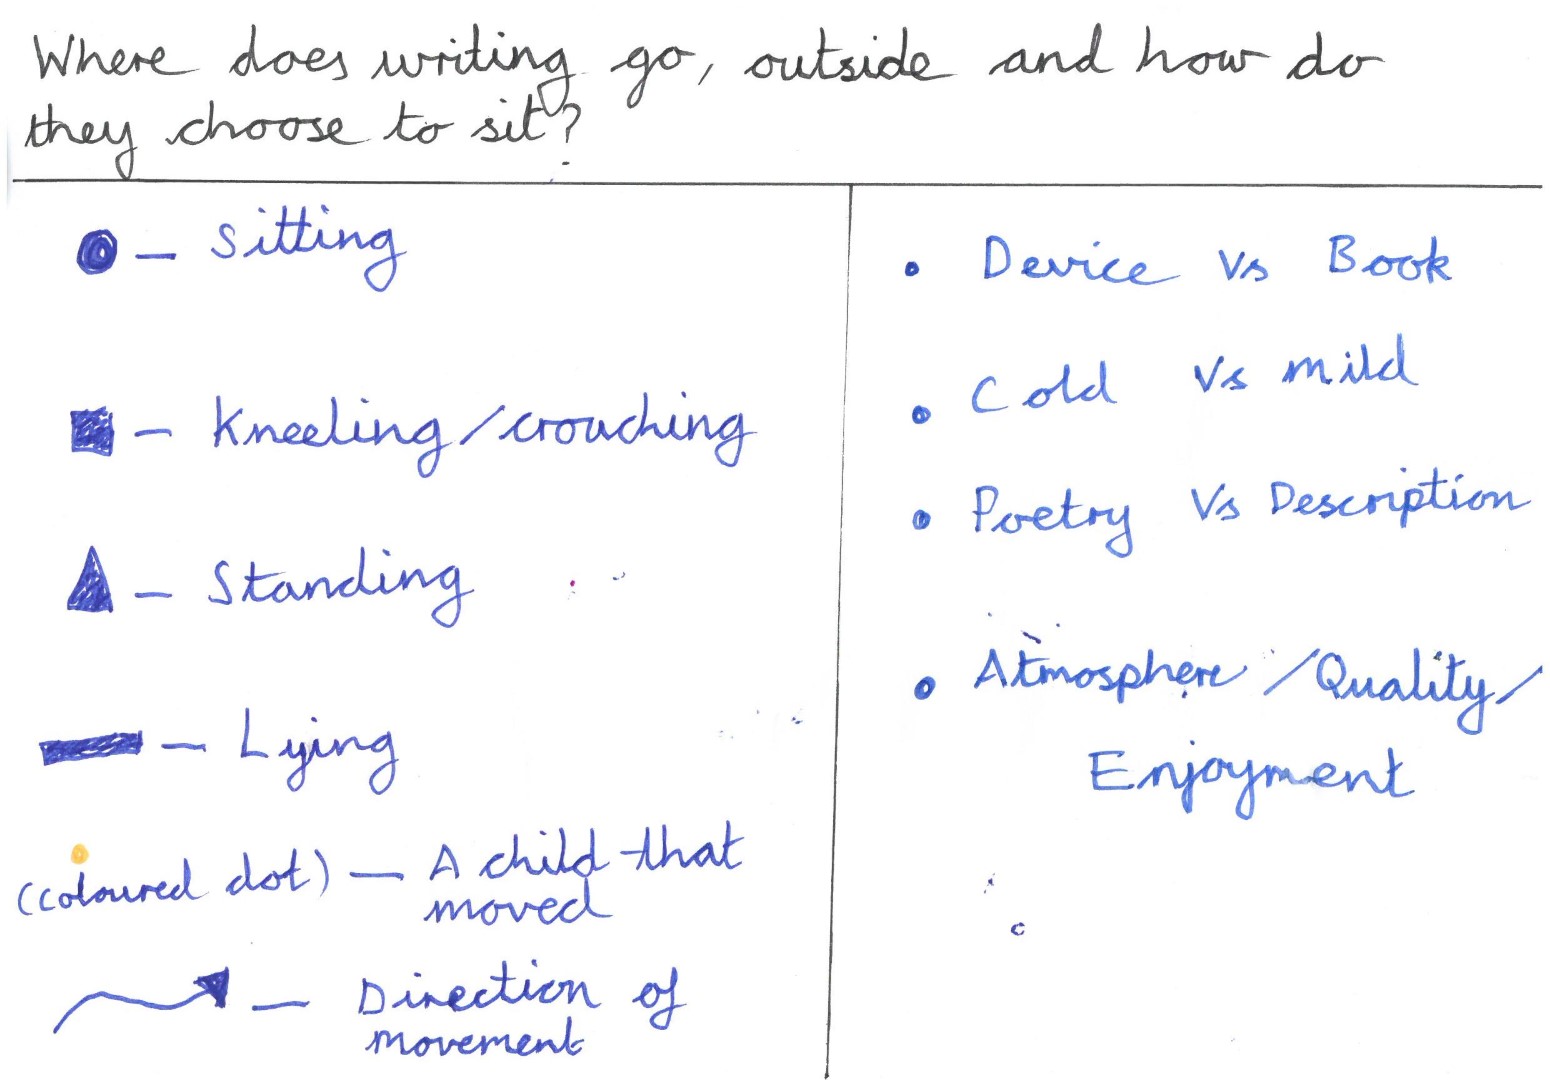 Where does writing go, outside and how do
they choose to sit?
— Sitting
— Kneeling/crouching
— Standing
— Lying
(coloured dot) — A child that
moved
— Direction of
movement
• Device Vs Book
• Cold Vs mild
• Poetry Vs Description
• Atmosphere/Quality/
Enjoyment